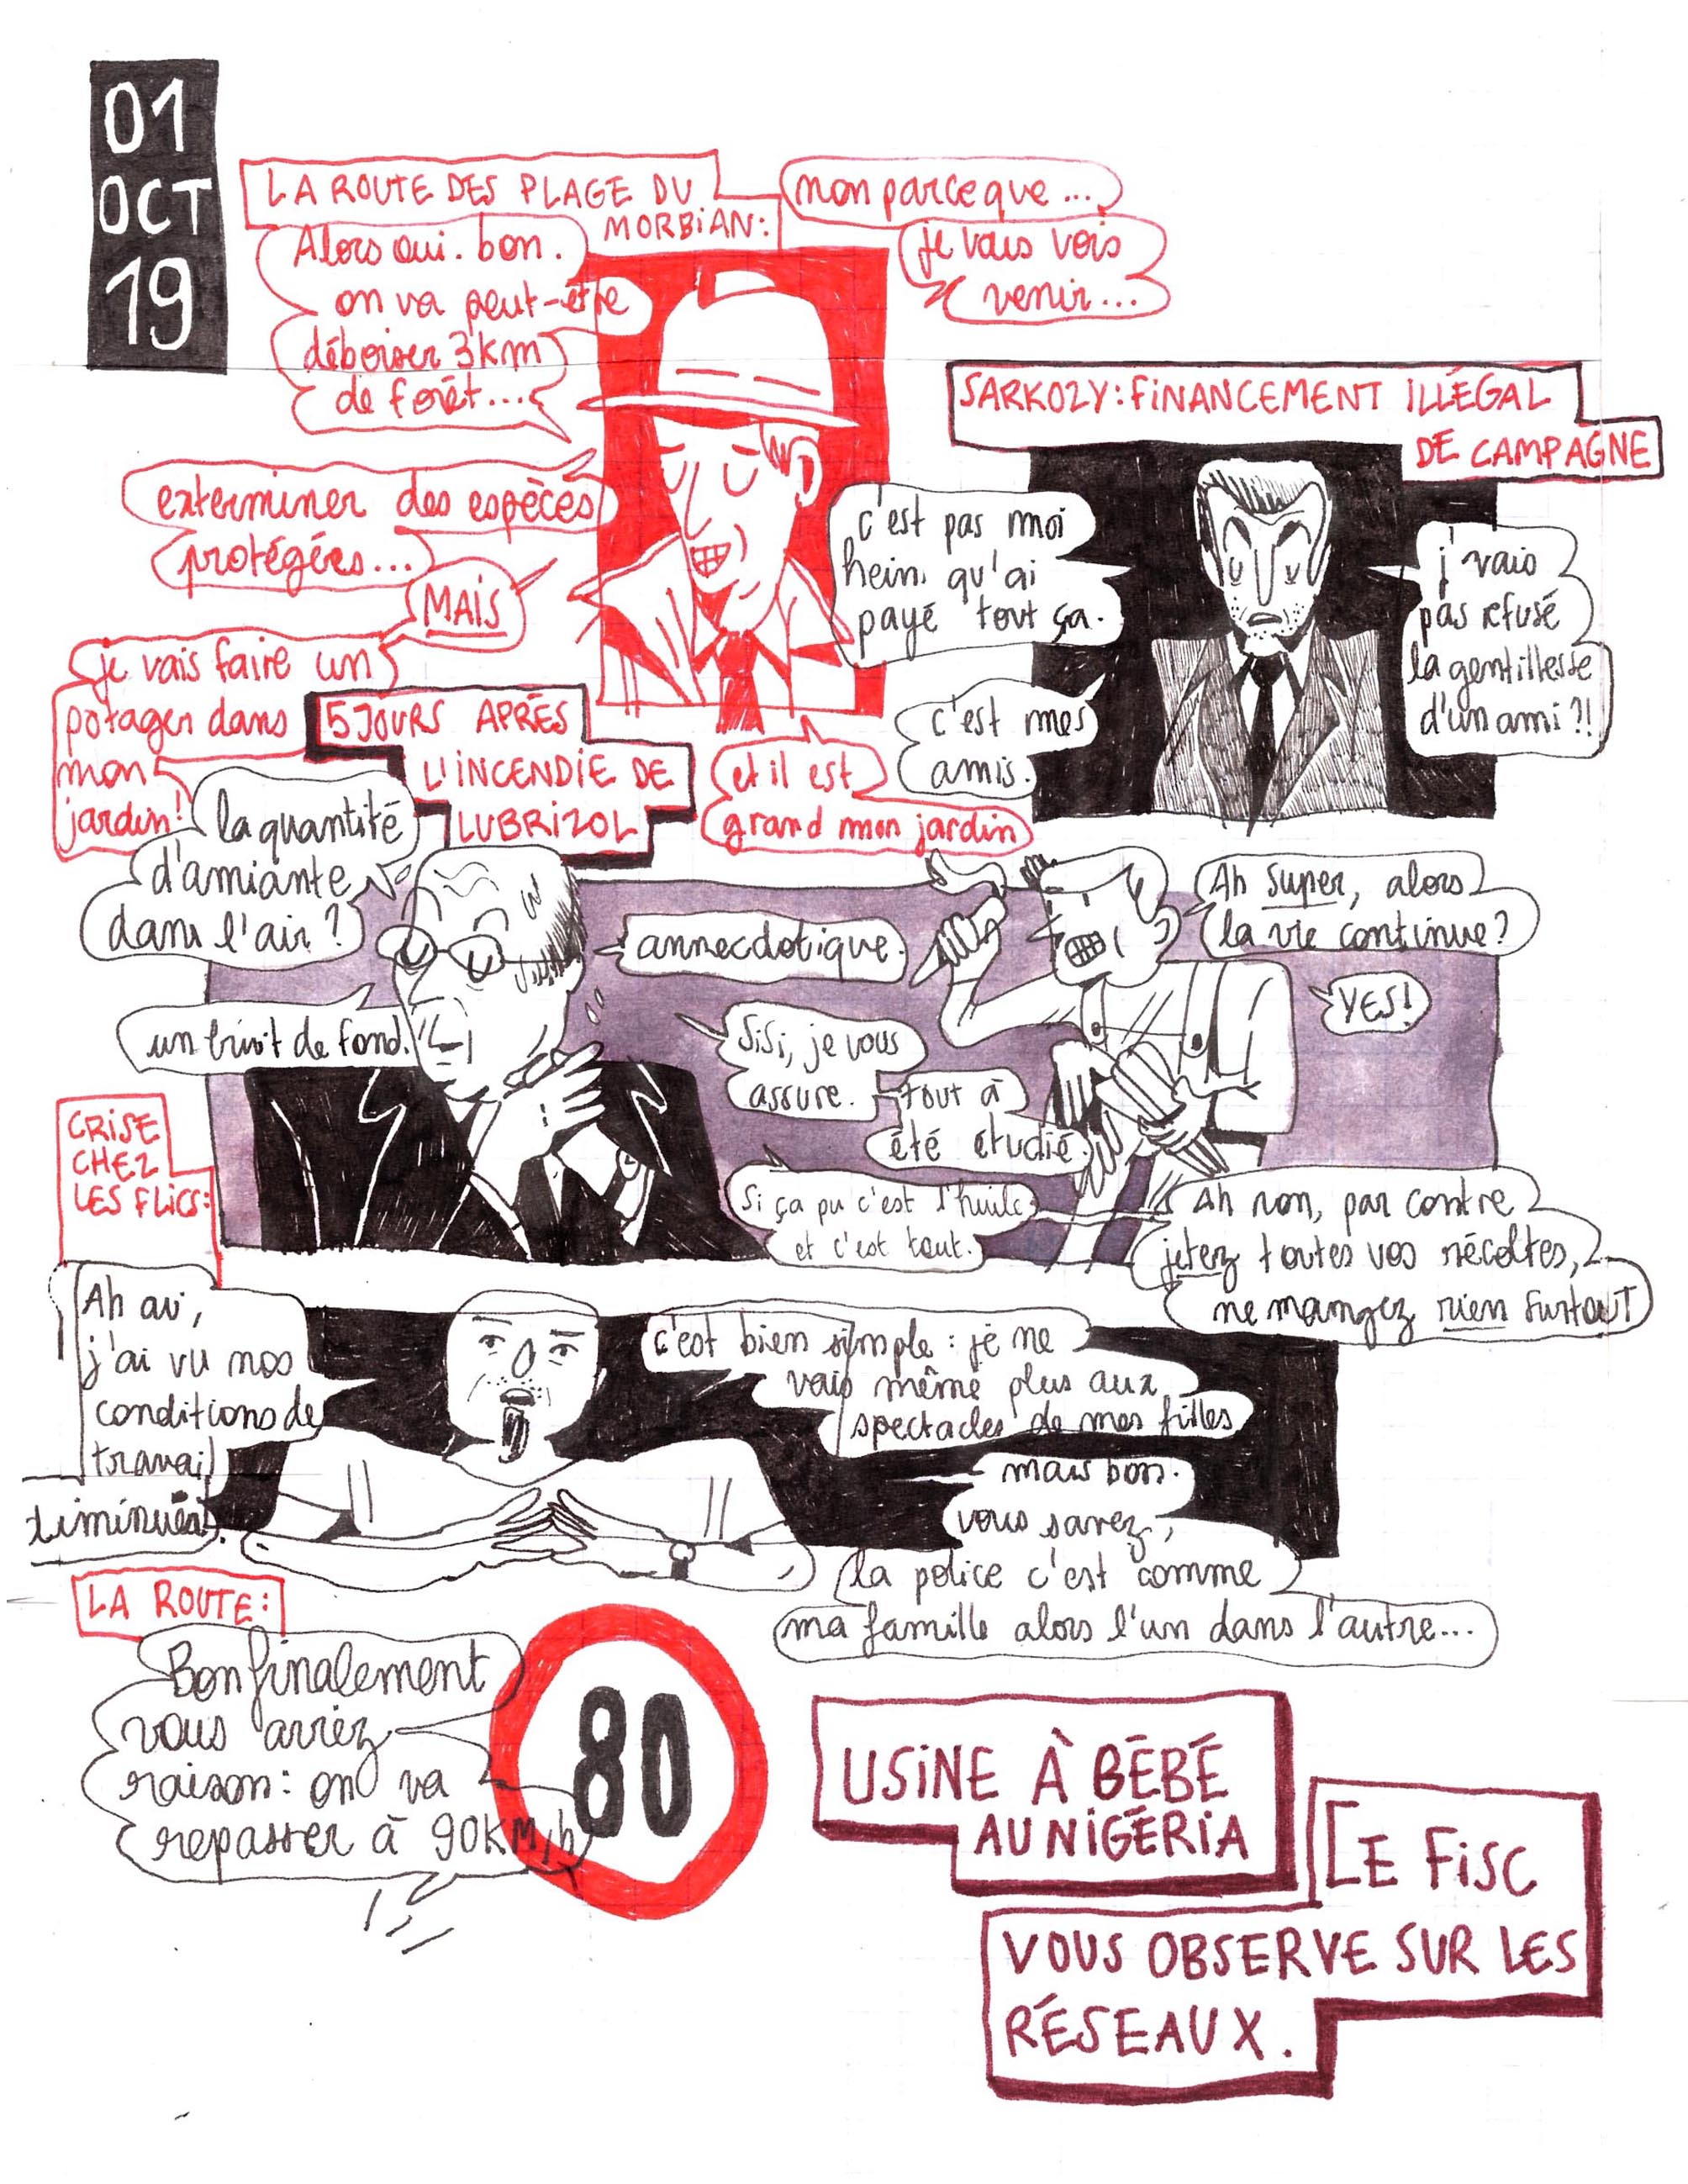 01
OCT
19
LA ROUTE DES PLAGE DU
MORBIAN:
non parce que ...
je vous vois
venir...
Alors oui. bon.
on va peut-être
déboiser 3km
de forêt...
exterminer des espèces
protégées...
MAIS
je vais faire un
potager dans
mon
jardin!
et il est
grand mon jardin
SARKOZY: FINANCEMENT ILLÉGAL
DE CAMPAGNE
c'est pas moi
hein, qu'ai
payé tout ça.
c'est mes
amis.
j'vais
pas refusé
la gentillesse
d'un ami ?!
5 JOURS APRÈS
L'INCENDIE DE
LUBRIZOL
la quantité
d'amiante
dans l'air ?
annecdotique.
un bruit de fond.
Ah super, alors
la vie continue?
YES!
SiSi, je vous
assure.
tout à
été étudié.
Si ça pu c'est l'huile
et c'est tout.
Ah non, par contre
jetez toutes vos récoltes,
ne mangez rien surtouT
CRISE
CHEZ
LES FLICS:
Ah oui,
j'ai vu nos
conditions de
travail
diminuer
c'est bien simple : je ne
vais même plus aux
spectacles de mes filles
mais bon.
vous savez,
la police c'est comme
ma famille alors l'un dans l'autre...
LA ROUTE:
Bon finalement
vous aviez
raison: on va
repasser à 90KM/h
80
USINE À BÉBÉ
AU NIGÉRIA
LE FISC
VOUS OBSERVE SUR LES
RÉSEAUX.